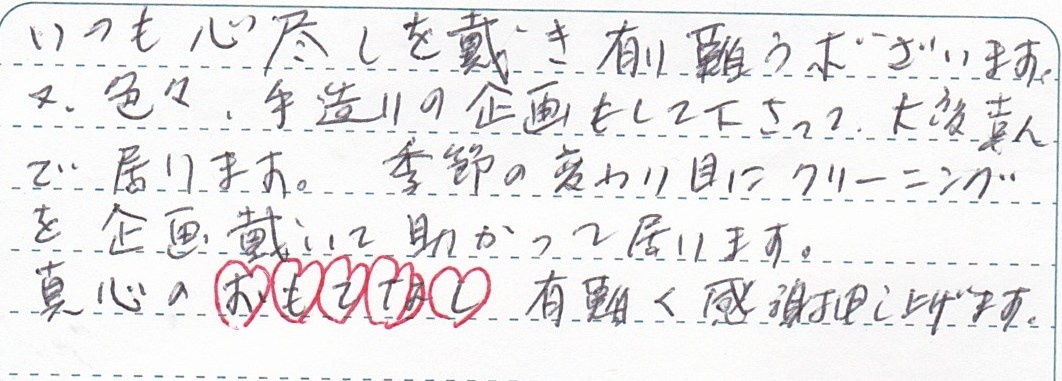 いつも心尽しを戴き有り難うございます。
又、色々、手造りの企画もして下さって、大変喜ん
で居ります。 季節の変わり目にクリーニング
を企画戴いて助かって居ります。
真心のおもてなし 有難く感謝押し上げます。